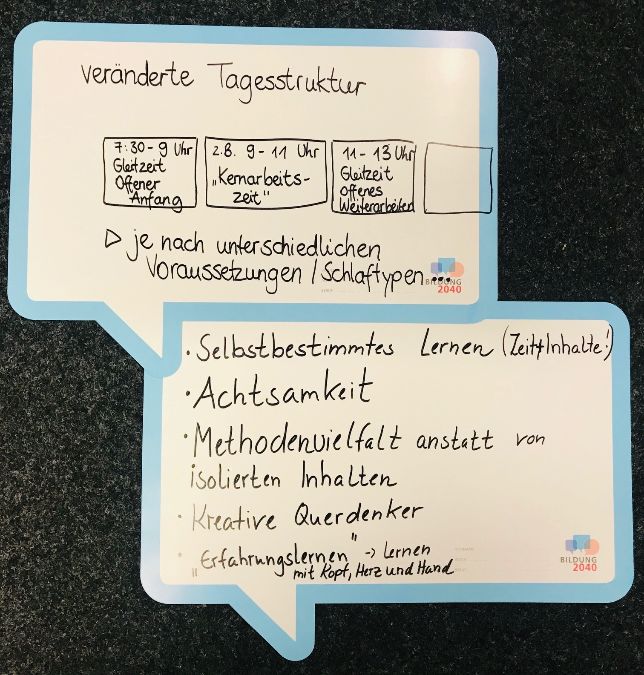 veränderte Tagesstruktur
7:30-9 Uhr
Gleitzeit
Offener
Anfang
z.B. 9-11 Uhr
"Kernarbeits-
zeit"
11-13 Uhr
Gleitzeit
offenes
Weiterarbeiten
▷ je nach unterschiedlichen
Voraussetzungen / Schlaftypen...
BILDUNG
2040
• Selbstbestimmtes Lernen (Zeit+Inhalte!)
• Achtsamkeit
• Methodenvielfalt anstatt von
isolierten Inhalten
• Kreative Querdenker
• "Erfahrungslernen" -> Lernen
mit Kopf, Herz und Hand
BILDUNG
2040